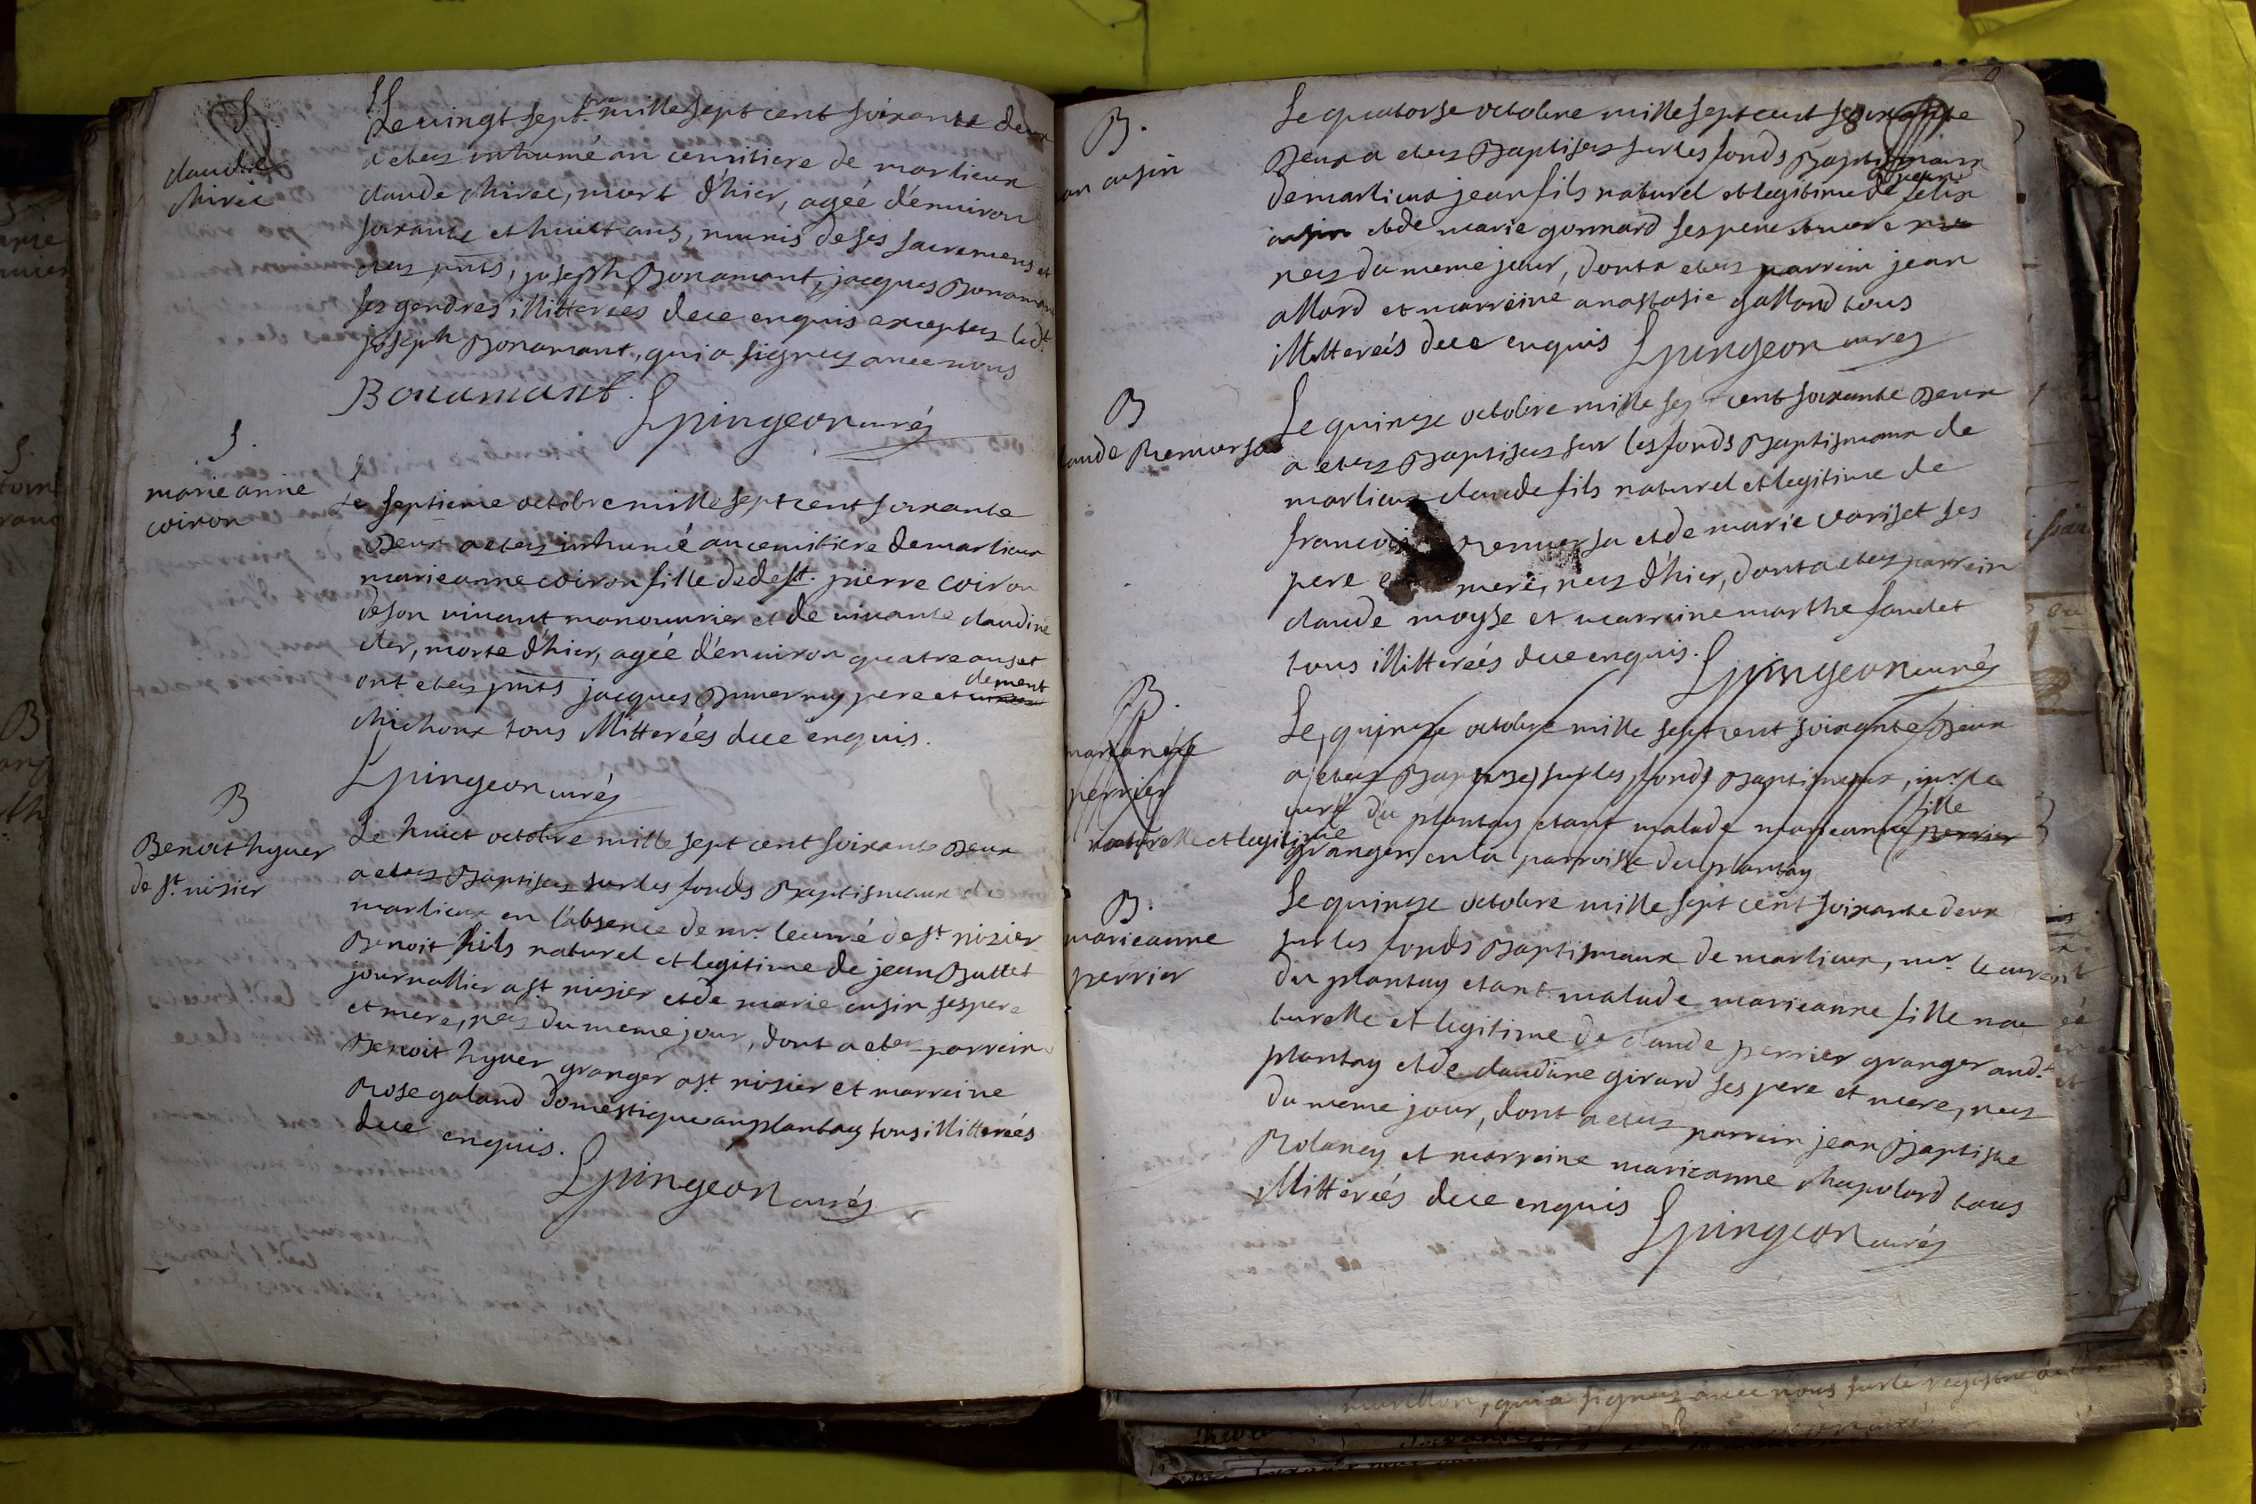 S
claude
chirec
Le vingt sept.bre mille sept cent soixante deux
a etez inhumé au cemitiere de marlieux
claude chirec, mort d'hier, ageé d'enuiron
soixante et huict ans, munis de ses sacremens et
etez pnts, joseph Bonamant, jacques Bonamant
ses gendres illitereés de ce enquis exceptez led.t
joseph Bonamant, qui a signez auec nous
Bonamant. Epingeon curéz
S.
marie anne
coiron
Le septieme octobre mille sept cent soixante
Deux a etez inhumé au cemitiere de marlieux
marieanne coiron fille de deft. pierre coiron
de son viuant manouurier et de viuante claudine
cler, morte d'hier, ageé d'enuiron quatre ans et
ont etez pnts jacques Duuernay pere et clement
chichoux tous illitereés de ce enquis.
Epingeon curéz
B
Benoit hyuer
de st. nisier
Le huict octobre mille sept cent soixante Deux
a etez Baptisez sur les fonds Baptismaux de
marlieux en l'absence de mr. le curé de st. nisier
Benoit fils naturel et legitime de jean Buttet
journallier a st. nisier et de marie cusin ses pere
et mere, nez du meme jour, dont a etez parrein
Benoit hyuer granger a st. nisier et marreine
Rose galand domestique au plantay tous illitereés
de ce enquis.
Epingeon curéz
B.
cusin
Le quatorse octobre mille sept cent soixante
Deux a etez Baptisez sur les fonds Baptismaux
de marlieux jean fils naturel et legitime de felix
cusin et de marie gonnard ses pere et mere
nez du meme jour, dont a etez parrein jean
allard et marreine anastasie galland tous
illitereés de ce enquis Epingeon curéz
B
claude Remuersa
Le quinze octobre mille sept cent soixante Deux
a etez Baptisez sur les fonds Baptismaux de
marlieux claude fils naturel et legitime de
francois Remuersa et de marie variset ses
pere et mere, nez d'hier, dont a etez parrein
claude moyse et marreine marthe faudet
tous illitereés de ce enquis. Epingeon curéz
B.
marianne
perrier
Le quinze octobre mille sept cent soixante Deux
a etez Baptisez sur les fonds Baptismaux, mr. le
curé du plantay etant malade marieanne perrier fille
naturelle et legitime
granger en la parroisse du plantay
B.
marieanne
perrier
Le quinze octobre mille sept cent soixante deux
sur les fonds Baptismaux de marlieux, mr. le curé
du plantay etant malade marieanne fille na
turelle et legitime de claude perrier granger aud.t
plantay et de claudine girard ses pere et mere, nez
du meme jour, dont a etez parrein jean Baptiste
Rolancy et marreine marieanne chapolard tous
illitereés de ce enquis Epingeon curéz
qui a signez auec nous sur le registre